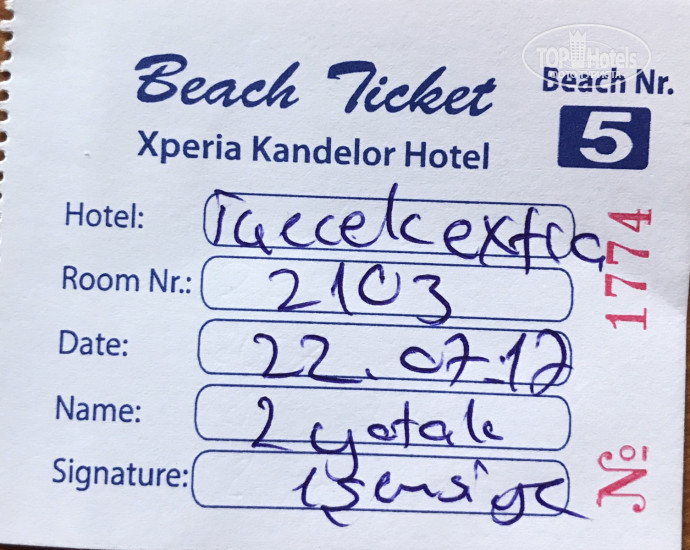 TOPHotels
Beach Ticket
Beach Nr.
5
Xperia Kandelor Hotel
Hotel: extra
Room Nr.: 2103
Date: 22.07.17
Name: 2 yatak
Signature:
№ 1774